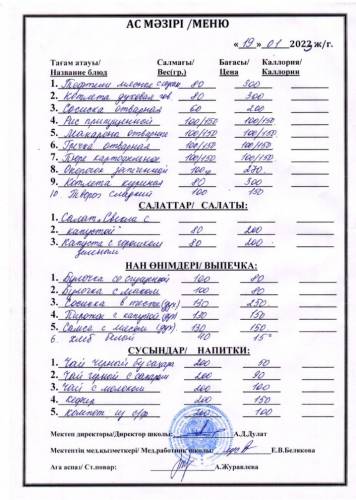 АС МӘЗІРІ /МЕНЮ
« 19 » 01 2023 ж/г.
Тағам атауы/ Салмағы/ Бағасы/ Каллории/
Название блюд Вес(гр.) Цена Каллории
1. Тефтели мясные с соусом 80 300
2. Котлета духовая гов 80 300
3. Сосиска отварная 60 200
4. Рис припущенной 100/150 100/150
5. Макароны отварные 100/150 100/150
6. Гречка отварная 100/150 100/150
7. Пюре картофельное 100/150 100/150
8. Окорочок запеченный 100 270
9. Котлета куриная 80 300
10. Творог сладкий 100 150
САЛАТТАР/ САЛАТЫ:
1. Салат. Свекла с
2. капустой 80 200
3. Капуста с горошком 80 200
зеленым
НАН ӨНІМДЕРІ/ ВЫПЕЧКА:
1. Булочка со сгущенкой 100 80
2. Булочка с маком 100 80
3. Сосиска в тесте (дух) 130 250
4. Пирожок с капустой (дух) 130 150
5. Самса с мясом (дух) 130 150
6. хлеб белый 40 15
СУСЫНДАР/ НАПИТКИ:
1. Чай черной б/сахара 200 50
2. Чай черной с сахаром 200 90
3. Чай с молоком 200 100
4. кефир 200 150
5. компот из с/ф 200 100
Мектеп директоры/Директор школы: А.Д.Дулат
Мектептің мед.қызметкері/ Мед.работник школы: Е.В.Белякова
Аға аспаз/ Ст.повар: А.Журавлева